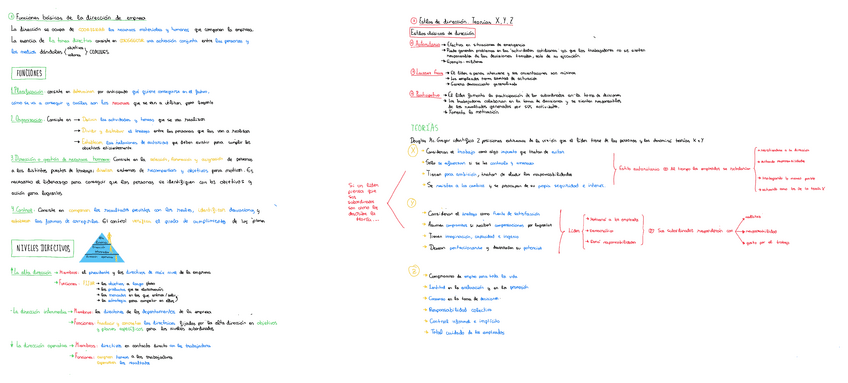 Funciones básicas de la dirección de empresa
La dirección se ocupa de los recursos materiales y humanos que componen la empresa.
La esencia de la tarea directiva consiste en una actuación conjunta entre las personas y
los medios dándoles objetivos comunes
FUNCIONES
1. Planificación: consiste en por anticipado qué quiere conseguirse en el futuro,
cómo se va a conseguir y cuáles son los recursos que se van a utilizar para lograrlo
Organización: Consiste en → las actividades y tareas que se van realizar
→ Dividir el trabajo entre las personas que las van a realizar
→ las relaciones de autoridad que deben existir para cumplir los
objetivos eficientemente
Dirección o gestión de recursos humanos: Consiste en la selección, formación y asignación de personas
a los distintos puestos de trabajo; sistemas de recompensa y objetivos para motivar. Es
necesario el liderazgo para conseguir que las personas se identifiquen con los objetivos y
acción para lograrlos
4. Control: Consiste en comparar los resultados previstos con los reales, identificar desviaciones y
las formas de corregirlas. El control el grado de cumplimiento de los planes
NIVELES DIRECTIVOS
La alta dirección → Miembros: el presidente y los directivos de más nivel de la empresa
→ Funciones: FIJAR → los objetivos a largo plazo
→ los productos que se
→ los mercados en los que entrar/salir
→ la estrategia para competir en ellos
La dirección intermedia → Miembros: los directores de los departamentos de la empresa
→ Funciones: las directrices fijadas por la alta dirección en objetivos
y planes específicos para los niveles subordinados
La dirección operativa → Miembros: directivos en contacto directo con los trabajadores
→ Funciones: asignan tareas a los trabajadores
los resultados
Estilos de dirección. Teorías X, Y, Z
Estilos clásicos de dirección
Autoritario → Efectivo en situaciones de emergencia
→ Puede generar problemas en las actividades cotidianas ya que los trabajadores no se sienten
responsables de las decisiones tomadas, solo de su ejecución.
→ Ejemplo: militares
Laissez faire → El líder apenas interviene y sus orientaciones son mínimas
→ Los empleados tienen libertad de actuación
→ Genera desorientación generalizada
Participativo → El líder fomenta la participación de los subordinados en la toma de decisiones
→ Los trabajadores colaboran en la toma de decisiones y se sienten responsables
de los resultados generados por sus actividades.
→ Fomenta la motivación
TEORÍAS
Douglas Mc Gregor identificó 2 posiciones extremas de la visión que el líder tiene de las personas y las denominó teorías X e Y
X
Consideran el trabajo como algo molesto que tratan de evitar
Solo se esfuerzan si se les controla y amenaza
Tienen poca ambición, tratan de eludir las responsabilidades
Se resisten a los cambios y se preocupan de su propia seguridad e interés
Si un líder
piensa que
sus
subordinados
son como los
describe la
teoría...
Y
Consideran el trabajo como fuente de satisfacción
Asumen compromisos si reciben compensaciones por lograrlos
Tienen imaginación, creatividad e ingenio
Desean perfeccionarse y desarrollar su potencial
Líder
Democrático
Sus subordinados responderán con
responsabilidad
gusto por el trabajo
Z
Compromiso de empleo para toda la vida
Lentitud en la evaluación y en la promoción
Consenso en la toma de decisiones
Responsabilidad colectiva
Control informal e implícito
Total cuidado de los empleados